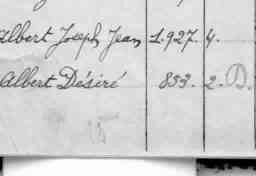 Albert Joseph Jean 1.927. 4.
Albert Désiré 833. 2. D.